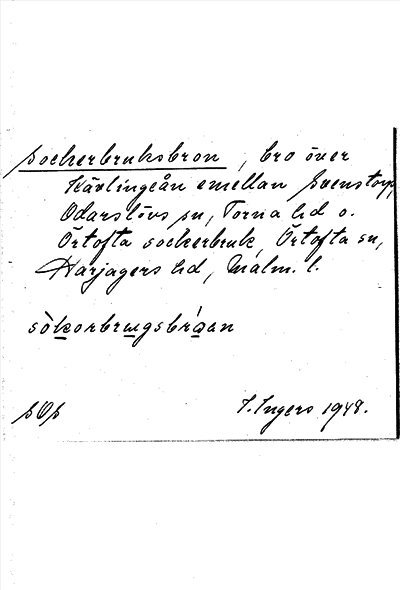 sockerbruksbron, bro över
Kävlingeån emellan Svenstorp,
Odarslövs sn, Torna hd o.
Örtofta sockerbruk, Örtofta sn,
Harjagers hd, Malm. l.
sòkorbrugsbrǻan
sOp
I. Ingers 1948.